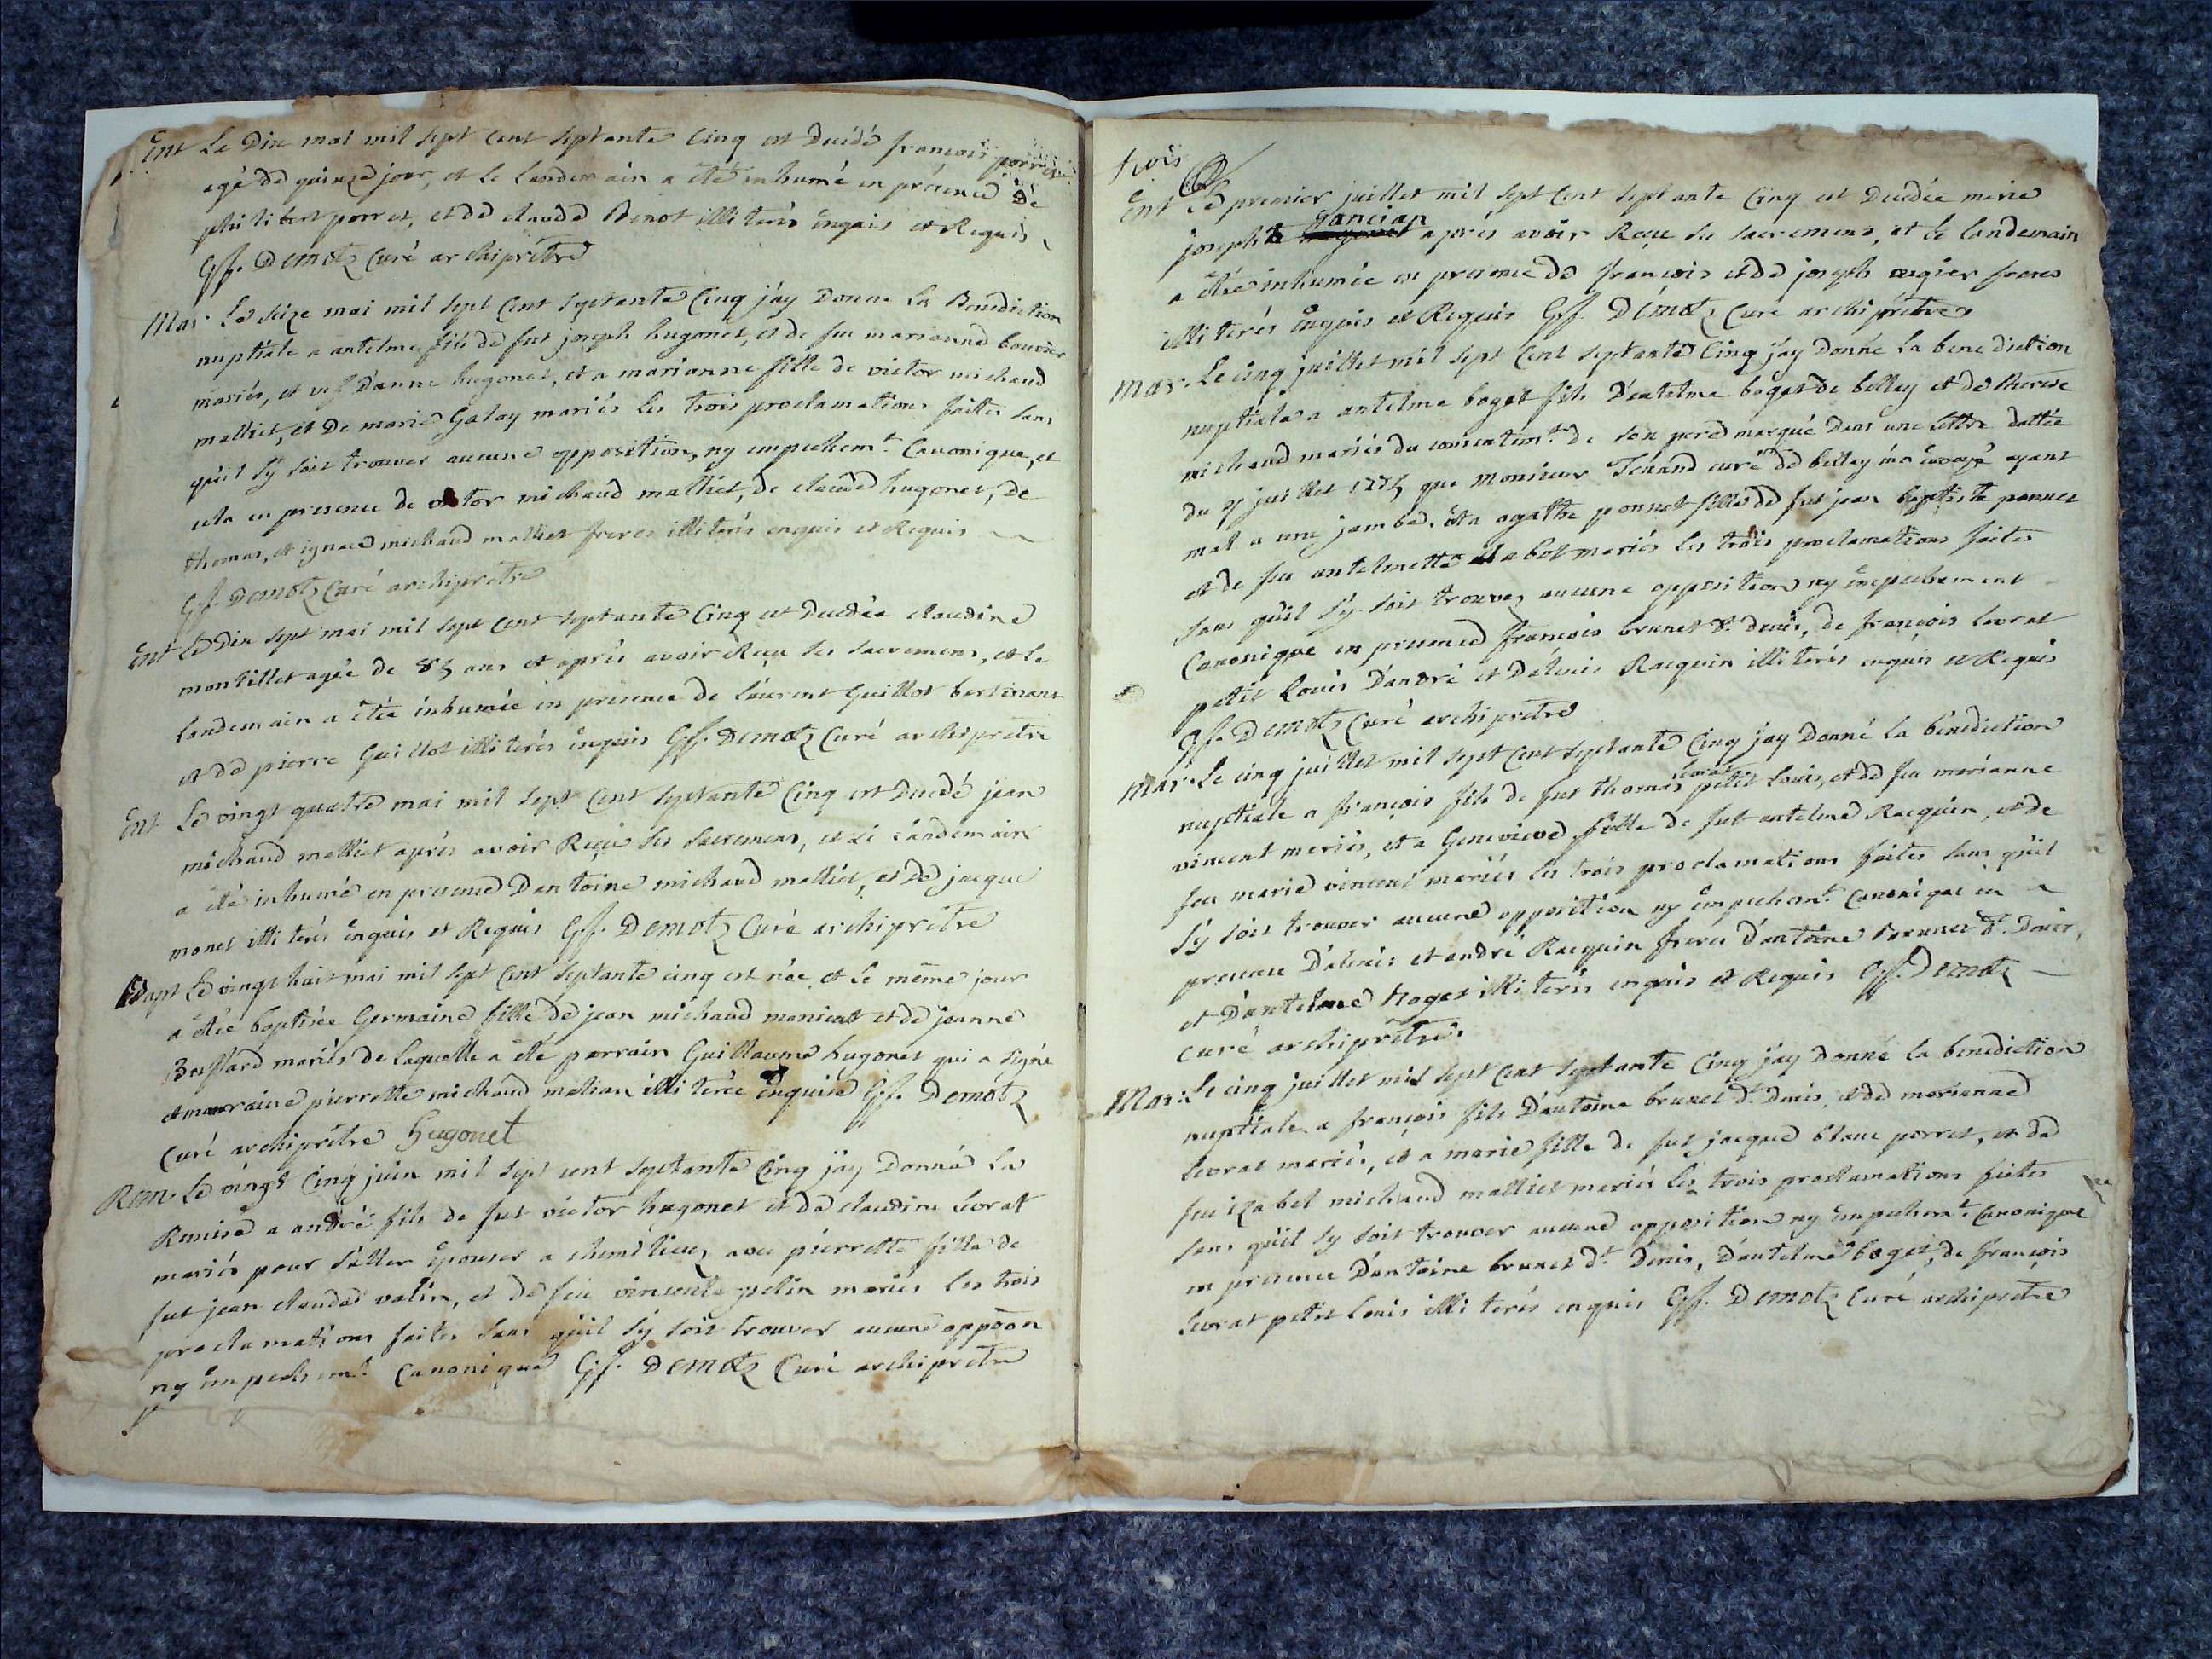 Ent Le Dix mai mil sept cent septante Cinq est Decédé françois porret
agé de quinze jour, et le Landemain a été inhumé en présence de
philibert porret, et de claude Benot illiterés enquis et Requis
Gf. Demotz Curé archiprêtre
Mar. Le seize mai mil sept Cent septante Cinq j'ay Donné La Benediction
nuptiale a antelme fils de fut joseph hugonet, et de feu marianne bouvier
mariés, et vef d'anne hugonet, et a marianne fille de victor michaud
malliet, et De marie Galay mariés les trois proclamations faites sans
qu'il s'y soit trouver aucune opposition, ny empechemt. Canonique, et
cela en presence de victor michaud malliet, de claude hugonet, de
thomas, et ignace michaud malliet freres illiterés enquis et Requis
Gf. Demotz Curé archiprêtre
Ent Le Dix sept mai mil sept Cent septante Cinq est Decédée claudine
montillet agée de 85 ans et après avoir Reçu ses sacremens, et le
landemain a étée inhumée en présence de laurent Guillot
et de pierre Guillot illiterés enquis Gf. Demotz Curé archiprêtre
Ent Le vingt quatre mai mil sept Cent septante Cinq est Decédé jean
michaud malliet après avoir Reçu ses sacremens, et le Landemain
a été inhumé en presence D'antoine michaud malliet, et de jacque
monet illiterés enquis et Requis Gf. Demotz Curé archiprêtre
Bapt Le vingt huit mai mil sept Cent septante cinq est née, et le même jour
a étée baptisée Germaine fille de jean michaud et de jeanne
mariés de laquelle a été parrain Guillaume hugonet qui a signé
et marraine pierrette michaud illiterée enquise Gf. Demotz
Curé archiprêtre hugonet
Rem. Le vingt Cinq juin mil sept cent septante Cinq j'ay Donné La
Remise a andré fils de fut victor hugonet et de claudine levrat
mariés pour s'aller épouser a avec pierrette fille de
fut jean claude vatin, et de feu vincente mariés les trois
proclamations faites sans qu'il s'y soit trouver aucune oppoon
ny empechemt. Canonique Gf. Demotz Curé archiprêtre
trois
Ent Le premier juillet mil sept Cent septante Cinq est Decédée marie
josephte gancian après avoir Reçue ses sacremens, et le landemain
a étée inhumée en presence de francois et de joseph freres
illiterés enquis et Requis Gf. Démotz Curé archiprêtre
Mar. Le cinq juillet mil sept Cent septante Cinq j'ay Donné la benediction
nuptiale a antelme boget fils D'antelme boget de belley et de therese
michaud mariés du consentemt. de son pere marqué dans une lettre dattée
du juillet 1775 que Monsieur Tenand curé de belley m'a envoyé ayant
mal a une jambe. et a agathe ponnet fille de fut jean baptiste ponnet
et de feu antelmette mariés les trois proclamations faites
sans qu'il s'y soit trouvez aucune opposition ny empechement
Canonique en presence françois brunet dt. denis, de françois levrat
petit Louis D'andré et D'alexis Racquin illiterés enquis et Requis
Gf. Demotz Curé archiprêtre
Mar. Le cinq juillet mil sept Cent septante Cinq j'ay Donné la bénédiction
nuptiale a françois fils de fut thomas levrat petit Louis, et de feu marianne
vincent mariés, et a Genevieve fille de fut antelme Racquin, et de
feu marie vincent mariés les trois proclamations faites sans qu'il
s'y soit trouver aucune opposition ny empechemt. Canonique en
presence D'alexis et andré Racquin freres D'antoine brunet dt. Denis,
et D'antelme boget illiterés enquis et Requis Gf. Demotz
Curé archiprêtre.
Mar: Le cinq juillet mil sept Cent septante Cinq j'ay Donné la benediction
nuptiale a françois fils D'antoine brunet dt. Denis, et de marianne
levrat mariés, et a marie fille de fut jacque blanc porret, et de
feu izabel michaud malliet mariés les trois proclamations faites
sans qu'il s'y soit trouver aucune opposition ny empechemt. Canonique
en presence D'antoine brunet dt. Denis, D'antelme boget, de françois
levrat petit Louis illiterés enquis Gf. Demotz Curé archiprêtre